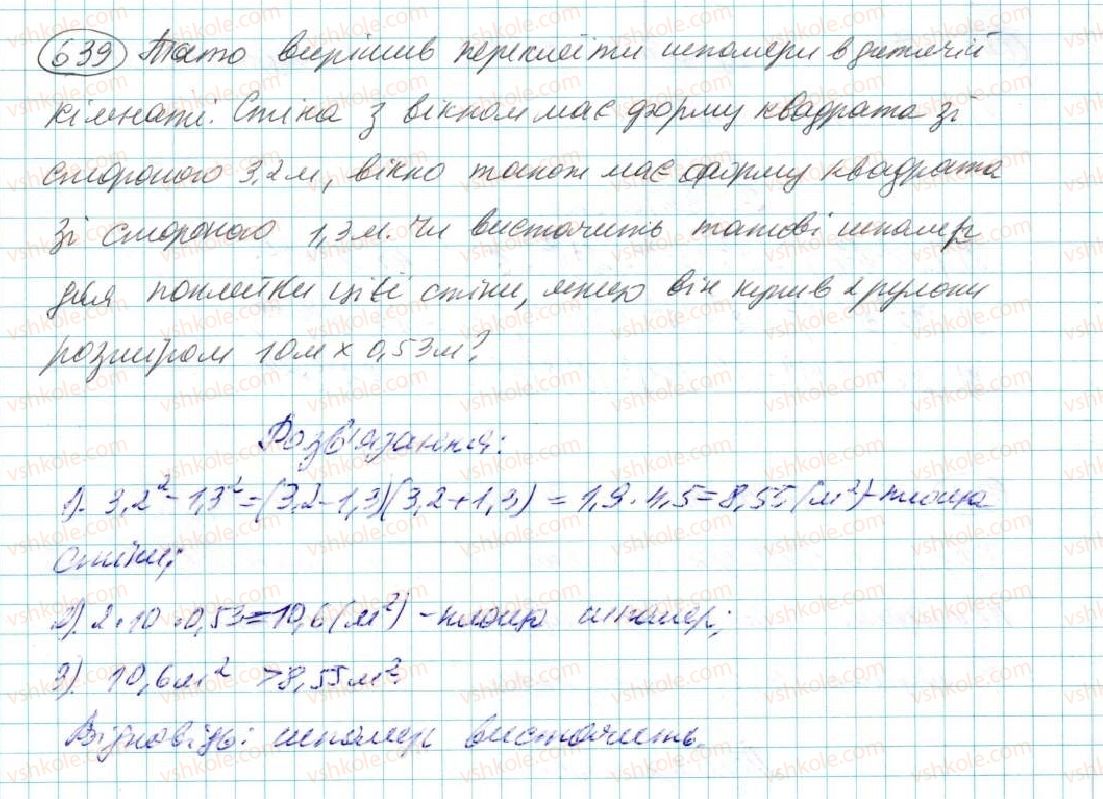 639 Тато вирішив переклеїти шпалери в дитячій
кімнаті. Стіна з вікном має форму квадрата зі
стороною 3,2 м, вікно також має форму квадрата
зі стороною 1,3 м. Чи вистачить татові шпалер
для поклейки цієї стіни, якщо він купив 2 рулони
розміром 10 м x 0,53 м?
Розв'язання:
1). 3,2² - 1,3² = (3,2 - 1,3)(3,2 + 1,3) = 1,9 · 4,5 = 8,55 (м²) - площа
стіни;
2). 2 · 10 · 0,53 = 10,6 (м²) - площа шпалер;
3). 10,6 м² > 8,55 м²
Відповідь: шпалер вистачить.
vshkole.com